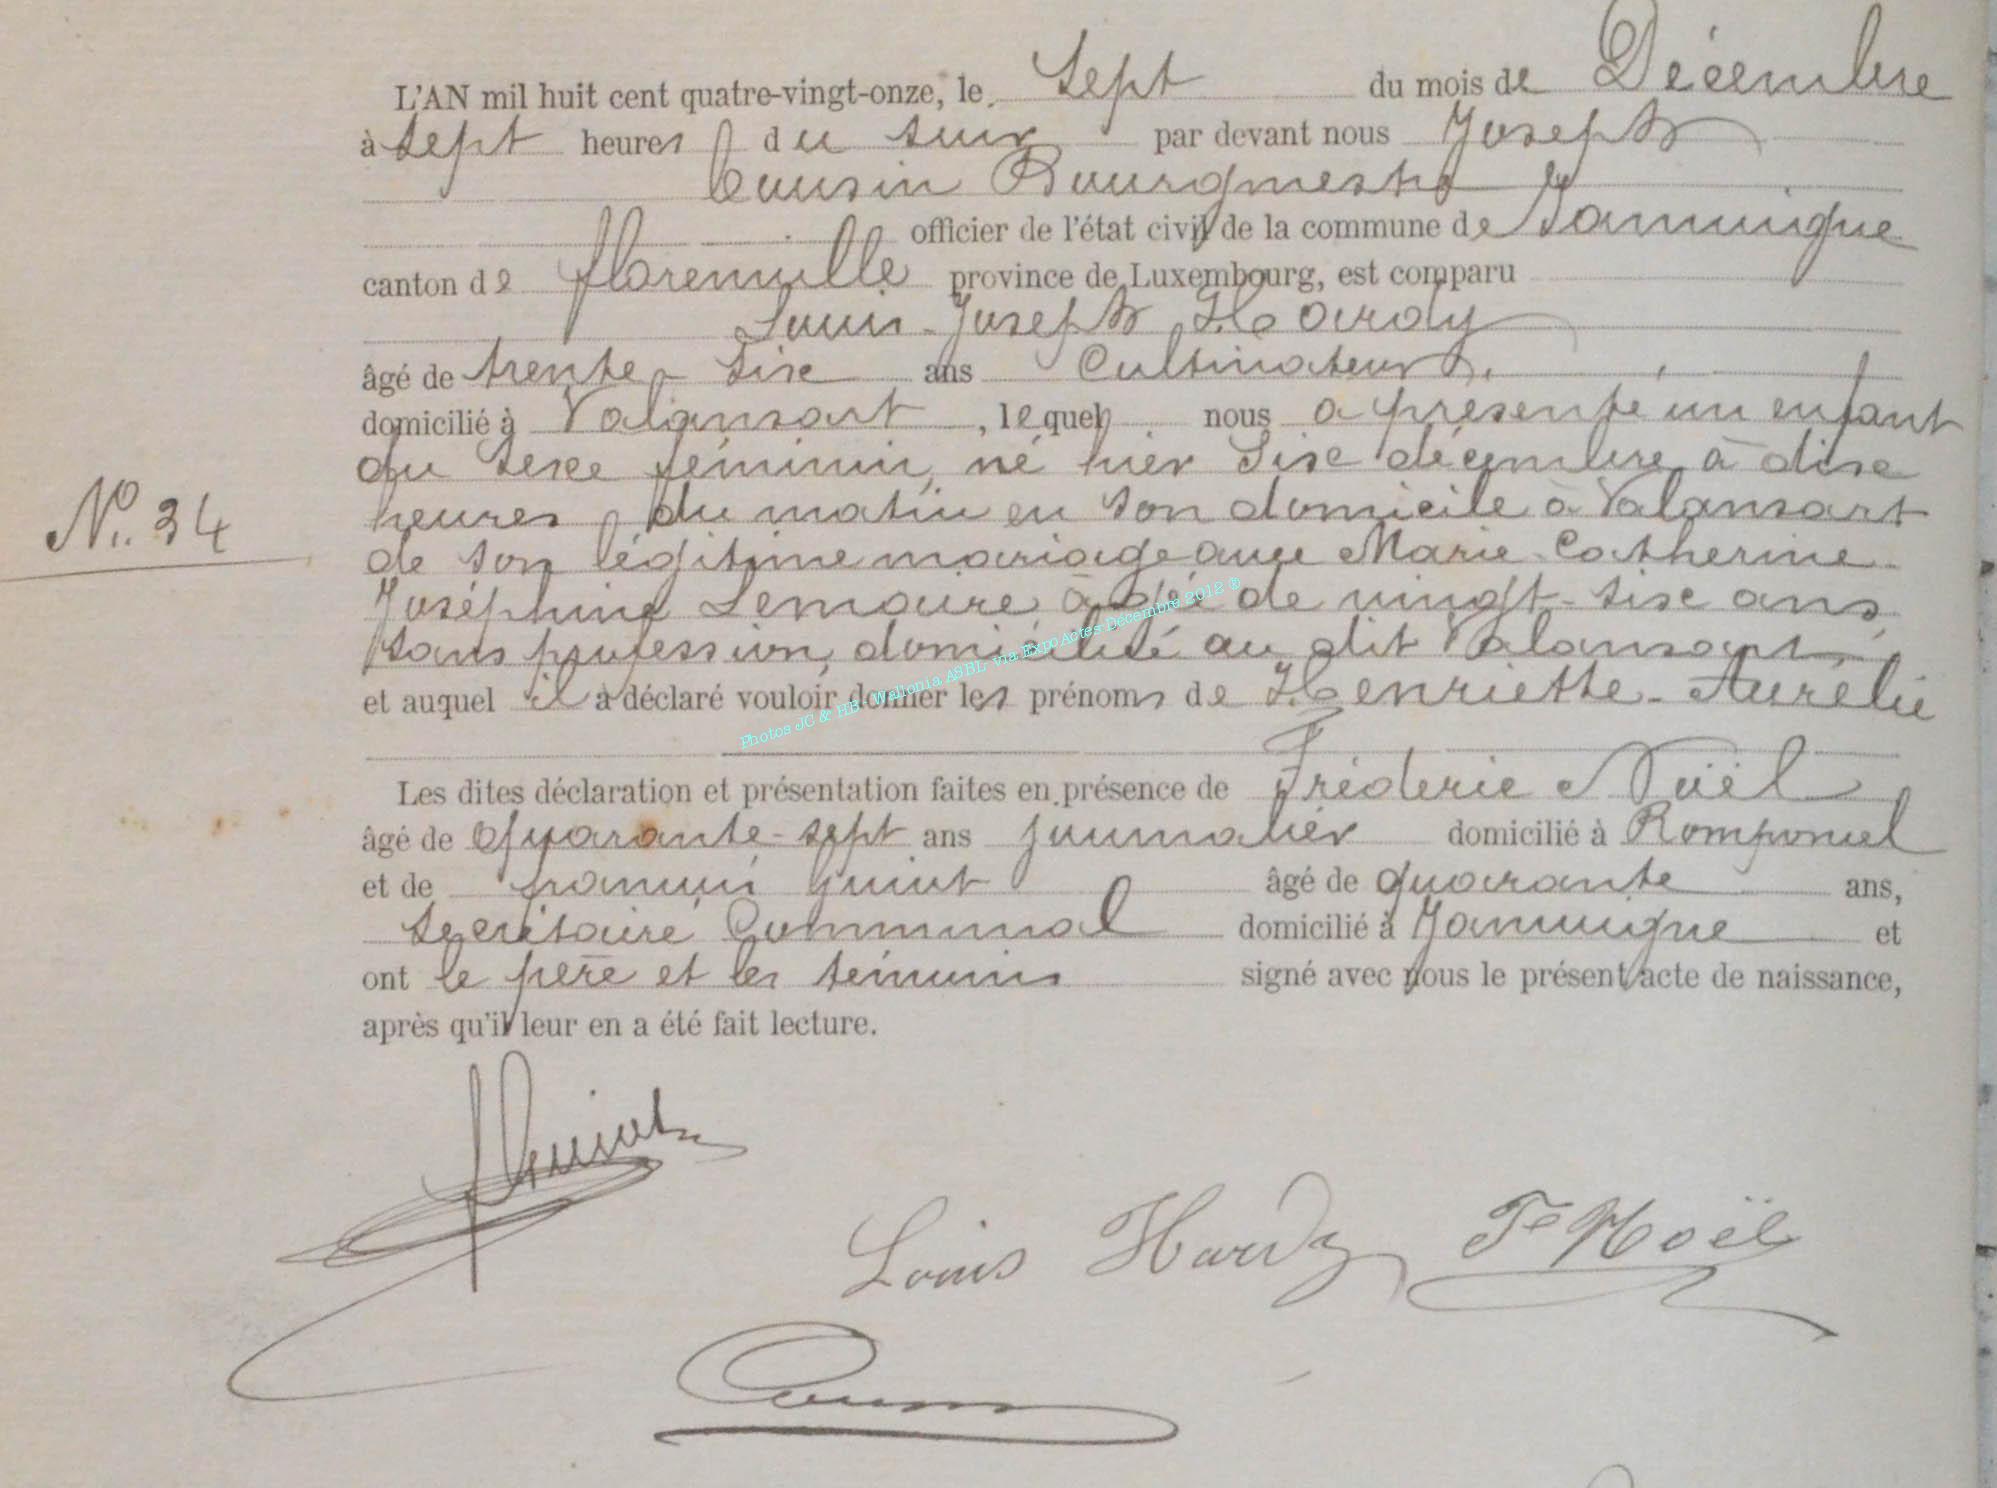 L'AN mil huit cent quatre-vingt-onze, le Sept du mois de Décembre
à Sept heures du Soir par devant nous Joseph
Cousin Bourgmestre
officier de l'état civil de la commune de Jamoigne
canton de florenville province de Luxembourg, est comparu
Louis-Joseph Hardy
âgé de trente-six ans Cultivateur,
domicilié à Valansart, lequel nous a présenté un enfant
du sexe féminin, né hier six décembre à dix
heures du matin en son domicile à Valansart
de son légitime mariage avec Marie-Catherine-
Joséphine Lemaire âgée de vingt-six ans
sans profession, domiciliée au dit Valansart,
et auquel il a déclaré vouloir donner les prénoms de Henriette-Aurélie
N°. 34
Les dites déclaration et présentation faites en présence de Fréderic Noël
âgé de quarante-sept ans journalier domicilié à Romponcel
et de françois guiot âgé de quarante ans,
secrétaire Communal domicilié à Jamoigne et
ont le père et les témoins signé avec nous le présent acte de naissance,
après qu'il leur en a été fait lecture.
Photos JC & HB - Wallonia ASBL via ExpoActes Décembre 2012 ®
fGuiot
Louis Hardy Fc Noël
Cousin